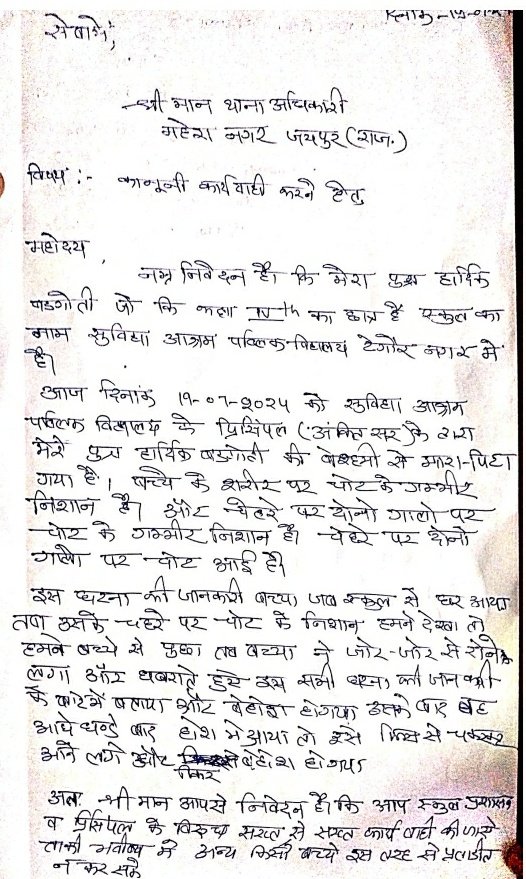 सेवामें,
श्री मान थाना अधिकारी
महेश नगर जयपुर (राज.)
विषय :- कानूनी कार्यवाही करने हेतु
महोदय,
नम्र निवेदन है। कि मेरा पुत्र हार्दिक
बडगोती जो कि कक्षा IV th का छात्र है स्कूल का
नाम सुविधा आश्रम पब्लिक विद्यालय टेगौर नगर में
है।
आज दिनांक 19-07-2024 को सुविधा आश्रम
पब्लिक विद्यालय के प्रिंसिपल (अंकित सर) के द्वारा
मेरे पुत्र हार्दिक बडगोती को बेरहमी से मारा-पिटा
गया है। बच्चे के शरीर पर चोट के गम्भीर
निशान है। और चेहरे पर दोनो गालो पर
चोट के गम्भीर निशान है। चेहरे पर दोनो
गालो पर चोट आई है।
इस घटना की जानकारी बच्चा जब स्कूल से घर आया
तथा उसके चहरे पर चोट के निशान हमने देखा तो
हमने बच्चे से पुछा तब बच्चा ने जोर-जोर से रोने
लगा और घबराते हुये इस सभी घटना की जानकारी
के बारे में बताया और बेहोश होगया उसके बाद वह
आधे घण्टे बाद होश मे आया तो इसे फिर से चक्कर
आने लगे और गिकर बेहोश हो गया
अतः श्री मान आपसे निवेदन है। कि आप स्कूल प्रशासन
व प्रिंसिपल के विरूध सख्त से सख्त कार्यवाही की जाये
ताकी भवीष्य मे अन्य किसी बच्चे इस तरह से प्रताडीत
न कर सके